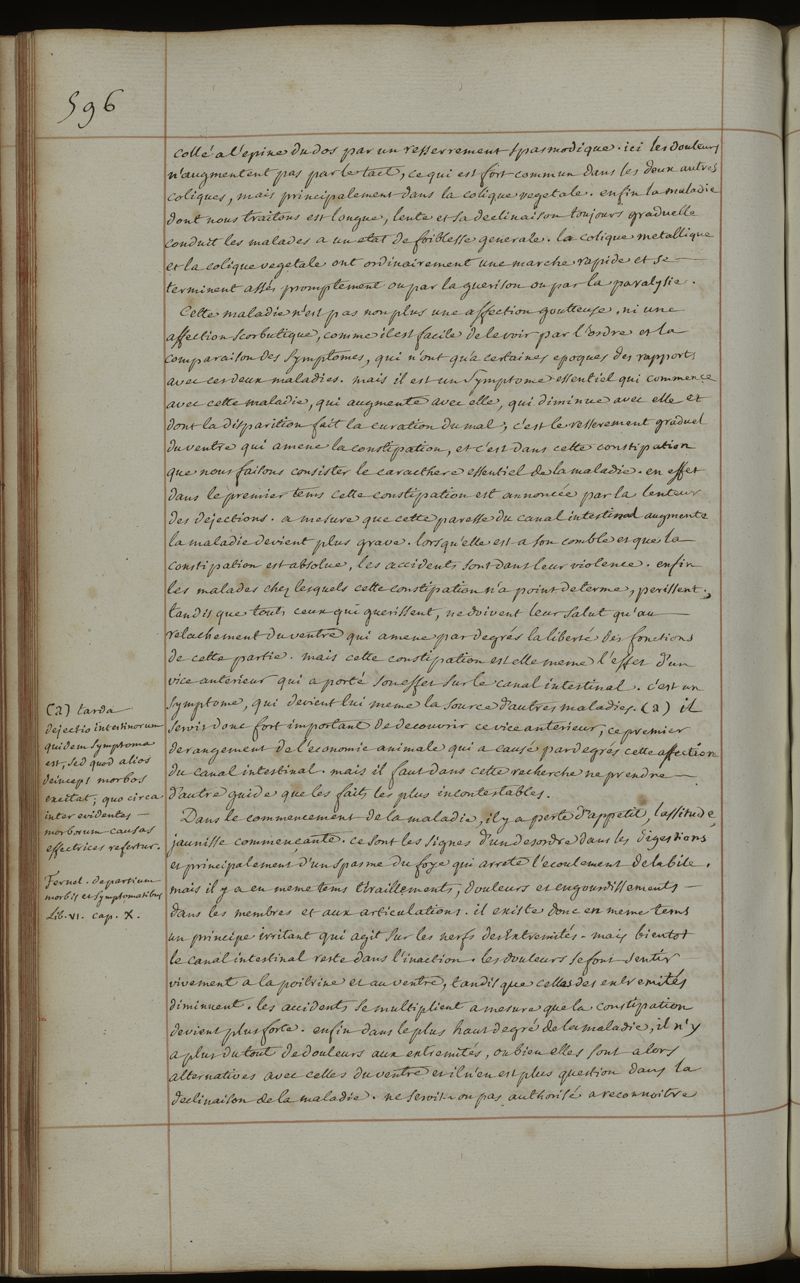 596
collé a l'epine du dos par un resserrement spasmodique. ici les douleurs
n'augmentent pas par le tact, ce qui est fort commun dans les deux autres
coliques, mais principalement dans la colique vegetale. enfin la maladie
dont nous traitons est longue, lente et sa declinaison toujours graduelle
conduit les malades a un etat de foiblesse generale. la colique metallique
et la colique vegetale ont ordinairement une marche rapide et se
terminent assés promptement ou par la guerison ou par la paralysie.
Cette maladie n'est pas non plus une affection goutteuse, ni une
affection scorbutique, comme il est facile de le voir par l'ordre et la
comparaison des symptomes, qui n'ont qu'a certaines epoques des rapports
avec ces deux maladies. mais il est un symptome essentiel qui commence
avec cette maladie, qui augmente avec elle, qui diminue avec elle et
dont la disparition fait la curation du mal; c'est le resserrement graduel
du ventre qui amene la constipation, et c'est dans cette constipation
que nous faisons consister le caracthere essentiel de la maladie. en effet
dans le premier tems cette constipation est annoncée par la lenteur
des dejections. a mesure que cette paresse du canal intestinal augmente
la maladie devient plus grave. lorsqu'elle est a son comble et que la
constipation est absolue, les accidents sont dans leur violence. enfin
les malades chez lesquels cette constipation n'a point de terme, perissent;
tandis que touts ceux qui guerissent, ne doivent leur salut qu'au
relachement du ventre qui amene par degrés la liberté des fonctions
de cette partie. mais cette constipation est elle meme l'effet d'un
vice anterieur qui a porté son effet sur le canal intestinal. c'est un
symptome, qui devient lui meme la source d'autres maladies. (a) il
seroit donc fort important de decouvrir ce vice anterieur, ce premier
derangement de l'économie animale qui a causé par degrés cette affection
du canal intestinal. mais il faut dans cette recherche ne prendre
d'autre guide que les faits les plus incontestables.
Dans le commencement de la maladie, il y a perte d'appetit, lassitude,
jaunisse commençante. ce sont les signes d'un desordre dans les digestions
et principalement d'un spasme du foye qui arrete l'ecoulement de la bile.
mais il y a en meme tems tiraillements, douleurs et engourdissements
dans les membres et aux articulations. il existe donc en meme tems
un principe irritant qui agit sur les nerfs des extremités. mais bientot
le canal intestinal reste dans l'inaction. les douleurs se font sentir
vivement a la poitrine et au ventre, tandis que celles des extremités
diminuent. les accidents se multiplient a mesure que la constipation
devient plus forte. enfin dans le plus haut degré de la maladie, il n'y
a plus du tout de douleurs aux extremités, ou bien elles sont alors
alternatives avec celles du ventre et il n'en est plus question dans la
declinaison de la maladie. ne seroit-on pas authorisé a reconnoitre
(a) tarda
dejectio intestinorum
quidem symptoma
est, sed quod alios
deinceps morbos
excitat; quo circa
inter evidentes
morborum causas
effectrices refertur.
Fernel. de partium
morbis et symptomatibus
Lib. VI. cap. X.